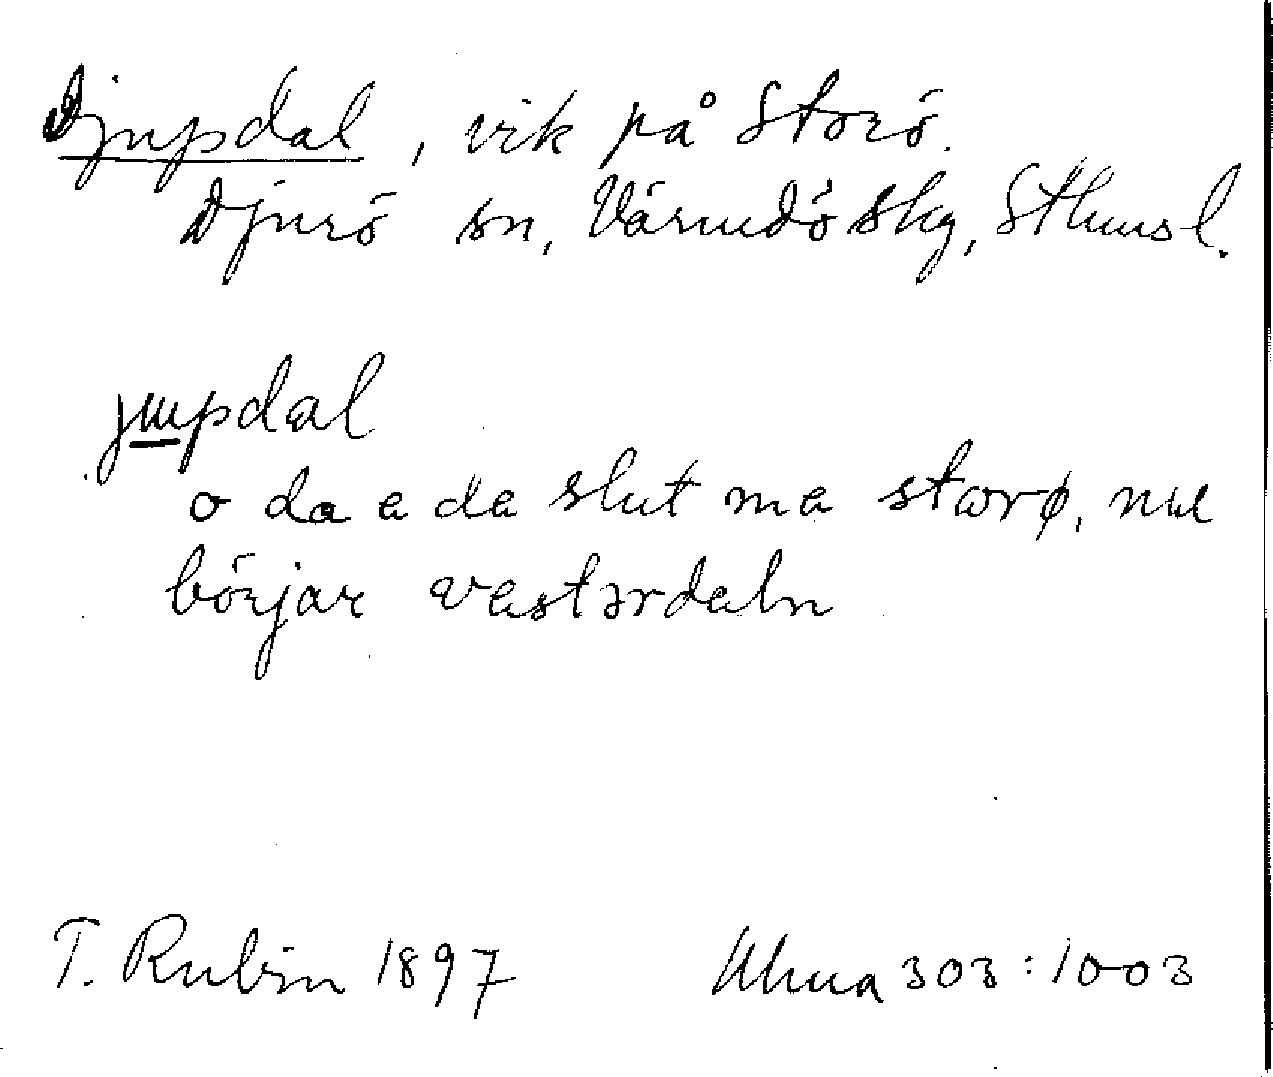 Djupdal, vik på Storö.
Djurö sn, Värmdö skg, Sthmsl.
jupdal
o da e de slut me storø, nu
börjar vestərdeln
T. Rubin 1897 Uhua 303:1003